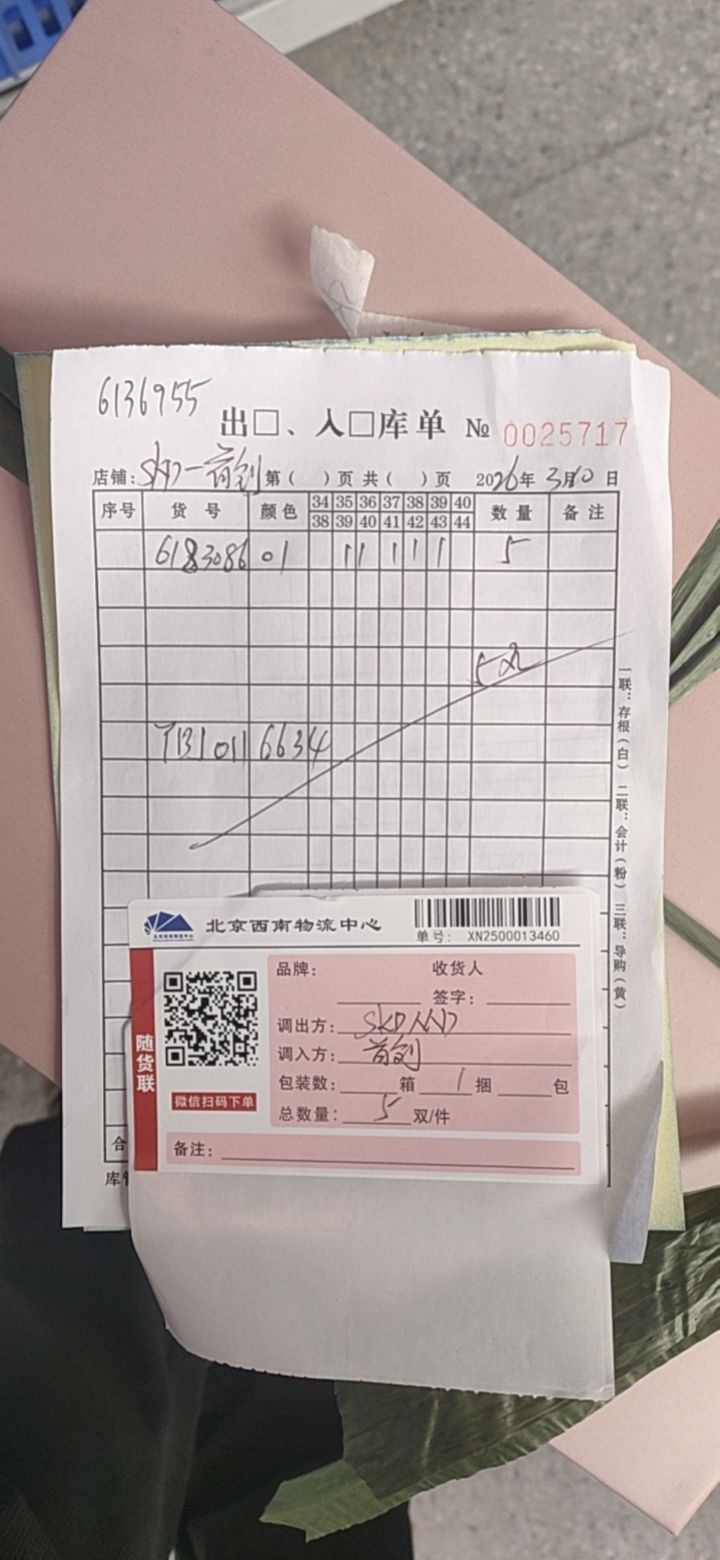 6136955
出□、入□库单 № 0025717
店铺: SKD一首创 第( )页 共( )页 2026年 3月10日
序号 货号 颜色 34 35 36 37 38 39 40 数量 备注
38 39 40 41 42 43 44
6183086 01 1 1 1 1 1 5
5双
T131011 6634
一联:存根(白) 二联:会计(粉) 三联:导购(黄)
合
库
北京西南物流中心
单号: XN2500013460
随货联
微信扫码下单
品牌: 收货人
签字:
调出方: SKD
调入方: 首创
包装数: 箱 1 捆 包
总数量: 5 双/件
备注: